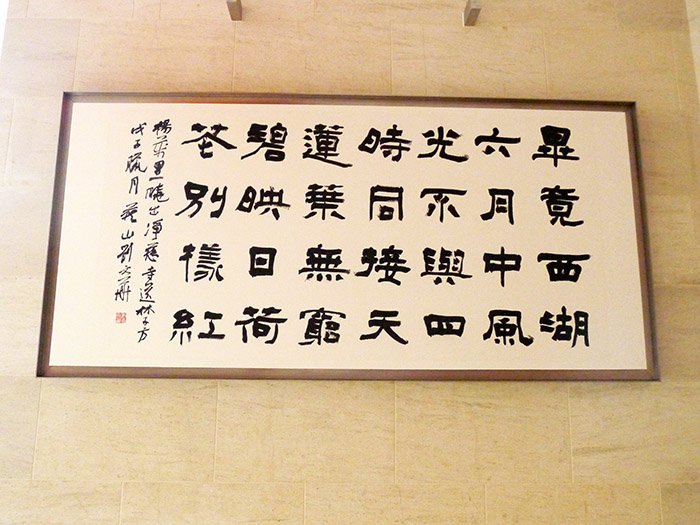 畢竟西湖
六月中風
光不與四
時同接天
蓮葉無窮
碧映日荷
花別樣紅
楊萬里曉出淨慈寺送林子方
戊子臘月山劉